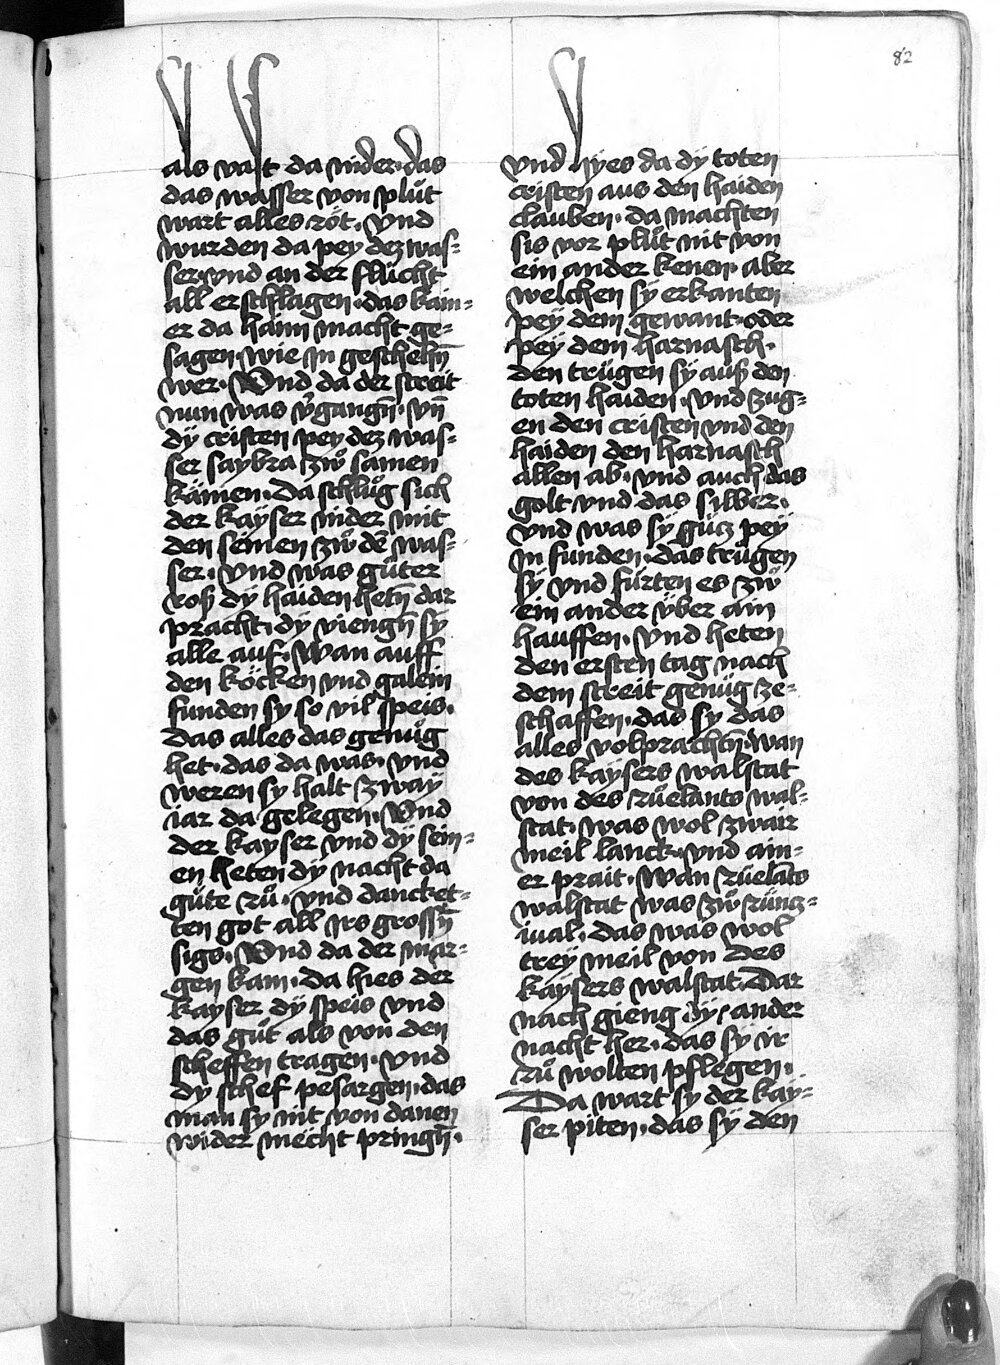 82
als vast da nider. das
das wasser von plůt
wart alles röt. Vnd
wurden da pey dez was=
ser. vnd an der flücht
all erschlagen. das kain=
er da haim macht ge=
sagen. wie jn geschehn̄
wer. Vnd da der streit
nun was v̓gangn̄. vn̄
dÿ cristen pey dez was=
ser saybra zẘ samen
kämen. Da schlůg sich
der kaÿser nider mit
den seinen zẘ dē was=
ser. Vnd was gůter
roß dÿ haiden hetn̄ dar
pracht. dÿ viengn̄ sÿ
alle auf. Wan auff
den köcken vnd galein
funden sy so vil speis.
das alles das genůg
het. das da was. vnd
weren sy halt zwaÿ
iar da gelegen. Vnd
der kayser vnd dÿ sein=
en heten dÿ nacht da
gůte rů. vnd dancket=
ten got all irs grossn̄
sigs. Vnd da der mar=
gen kam. da hies der
kayser dÿ speis vnd
das gůt als von den
scheffen tragen. vnd
dy schef pesargen. das
man sy nit von danen
wider mecht pringn̄.
vnd hÿes da dÿ toten
cristen aus den haiden
clauben. da machten
sis vor plůt nit von
ein ander kenen. aber
welchen sÿ erkanten
peÿ dem gewant. oder
peÿ dem harnasch.
den trůgen sÿ auß den
toten haiden. vnd zug=
en den cristen vnd den
haiden den harnasch
allen ab. vnd auch das
golt vnd das silber.
vnd was sÿ gůcz peÿ
jn funden. das trůgen
sÿ vnd fürten es zẘ
ein ander über ain
hauffen. vnd heten
den ersten tag nach
dem streit genůg ze=
schaffen. das sy das
alles volprachtn̄. wan
des kaÿsers walstat
von des růelants wal=
stat. was wol zwair
meil lanck. vnd ain=
er prait. Wan růelāts
walstat was zẘ rüncz=
iual. das was wol
treÿ meil von des
kaÿsers walstat. Dar
nach gieng dÿ ander
nacht her. das sÿ ir
rů wolten pflegen.
Da wart sy der kaÿ=
ser piten. das sÿ den